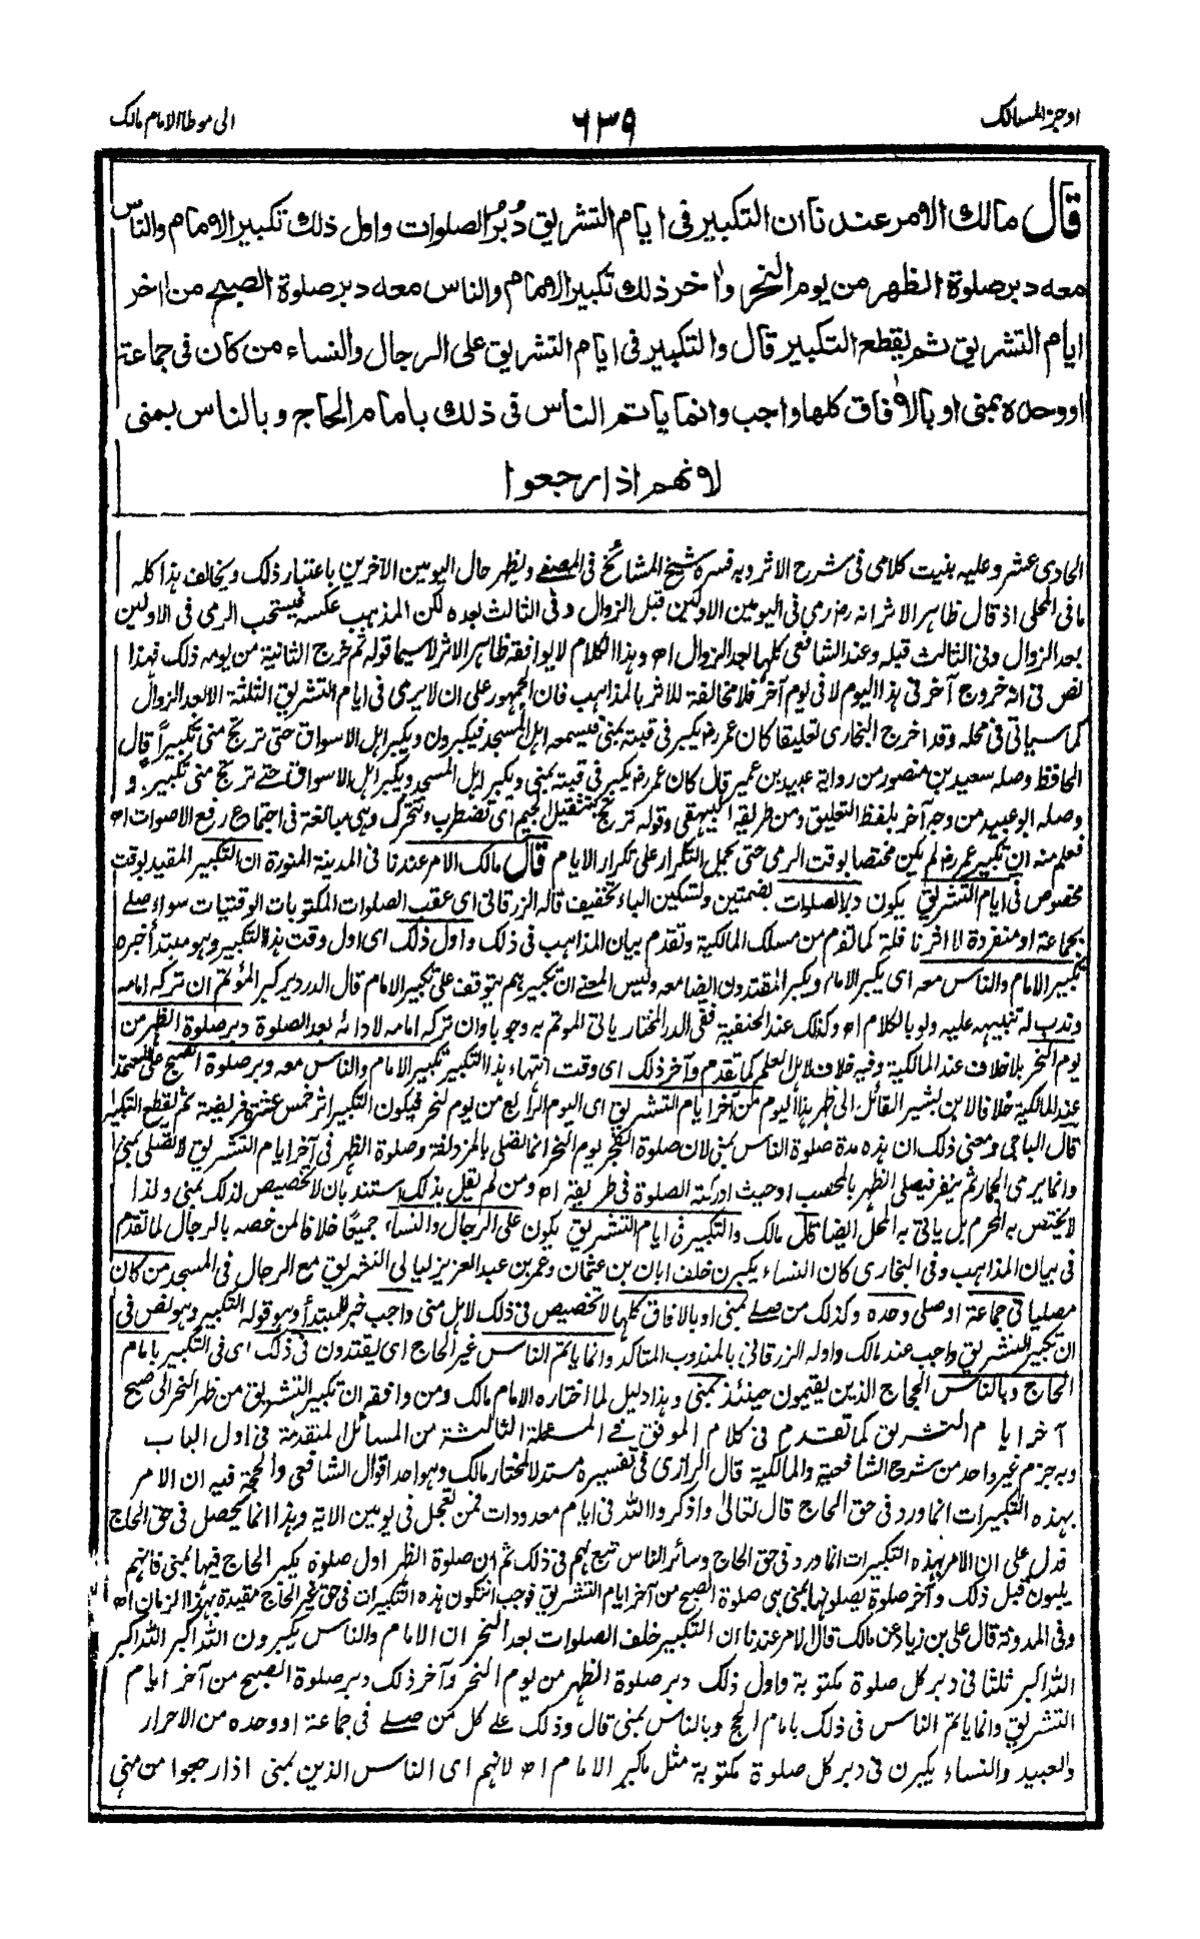 اوجز المسالك
٦٣٩
الى موطا الامام مالك
قال مالك الامر عندنا ان التكبير فى ايام التشريق دُبُر الصلوات واول ذلك تكبير الامام والناس
معه دبر صلوة الظهر من يوم النحر واٰخر ذلك تكبير الامام والناس معه دبر صلوة الصبح من اٰخر
ايام التشريق ثم يقطع التكبير قال والتكبير فى ايام التشريق على الرجال والنساء من كان فى جماعة
او وحده بمنى او بالاٰفاق كلها واجب وانما ياتم الناس فى ذلك بامام الحاج وبالناس بمنى
لانهم اذا رجعوا
الحادى عشر وعليه بنيت كلامى فى شرح الاثر وبه فسره شيخ المشائخ فى المصفے ويظهر حال اليومين الآخرين باعتبار ذلك ويخالف هذا كله
ما فى المحلى اذ قال ظاهر الاثر انه رضـ رمى فى اليومين الاولين قبل الزوال وفى الثالث بعده لكن المذهب عكسه فيستحب الرمى فى الاولين
بعد الزوال وفى الثالث قبله وعند الشافعى كلها بعد الزوال اھ وهذا الكلام لا يوافقه ظاهر الاثر لاسيما قوله ثم خرج الثانية من يومه ذلك فهذا
نص فى انه خروج آخر فى هذا اليوم لا فى يوم آخر فلا مخالفة للاثر بالمذاهب فان الجمهور على ان لا يرمى فى ايام التشريق الثلثة الا بعد الزوال
كما سياتى فى محله وقد اخرج البخارى تعليقا كان عمر رضـ يكبر فى قبته بمنى فيسمعه اهل المسجد فيكبرون ويكبر اهل الاسواق حتى ترتج منى تكبيراً قال
الحافظ وصله سعيد بن منصور من رواية عبيد بن عمير قال كان عمر رضـ يكبر فى قبته بمنى ويكبر اهل المسجد ويكبر اهل الاسواق حتے ترتج منى تكبيرا و
وصله ابو عبيد من وجه آخر بلفظ التعليق ومن طريقه البيهقى وقوله ترتج بتثقيل الجيم اى تضطرب وتتحرك وهى مبالغة فى اجتماع رفع الاصوات اھ
فعلم منه ان تكبير عمر رضـ لم يكن مختصا بوقت الرمى حتى يحمل التكرار على تكرار الايام قال مالك الامر عندنا فى المدينة المنورة ان التكبير المقيد بوقت
مخصوص فى ايام التشريق يكون دبر الصلوات بضمتين وتسكين الباء تخفيف قاله الزرقانى اى عقب الصلوات المكتوبات الوقتيات سواء صلے
بجماعة او منفردة لا اثر نافلة كما تقدم من مسلك المالكية وتقدم بيان المذاهب فى ذلك واول ذلك اى اول وقت هذا التكبير وهو مبتدأ خبره
تكبير الامام والناس معه اى يكبر الامام ويكبر المقتدون ايضا معه وليس المعنے ان تكبيرهم يتوقف على تكبير الامام قال الدردير كبر المؤتم ان تركه امامه
وندب له تنبيهه عليه ولو بالكلام اھ وكذلك عند الحنفية ففى الدر المختار ياتى الموتم به وجوبا وان تركه امامه لادائه بعد الصلوة دبر صلوة الظهر من
يوم النحر بلا خلاف عند المالكية وفيه خلاف لاهل العلم كما تقدم وآخر ذلك اى وقت انتهاء هذا التكبير تكبير الامام والناس معه دبر صلوة الصبح على المعتمد
عند المالكية خلافا لابن بشير القائل الى ظهر هذا اليوم من آخر ايام التشريق اى اليوم الرابع من يوم النحر فيكون التكبير اثر خمس عشرة فريضة ثم يقطع التكبير
قال الباجى ومعنى ذلك ان هذه مدة صلوة الناس بمنى لان صلوة الفجر يوم النحر انما تصلى بالمزدلفة وصلوة الظهر فى آخر ايام التشريق لا تصلى بمنى
وانما يرمى الجمار ثم ينفر فيصلى الظهر بالمحصب او حيث ادركته الصلوة فى طريقه اھ ومن لم يقل بذلك استند بان لا تخصيص لذلك بمنى ولذا
لا يختص به المحرم بل ياتى به المحل ايضا قال مالك والتكبير فى ايام التشريق يكون على الرجال والنساء جميعًا خلافا لمن خصه بالرجال لما تقدم
فى بيان المذاهب وفى البخارى كان النساء يكبرن خلف ابان بن عثمان وعمر بن عبد العزيز ليالى التشريق مع الرجال فى المسجد من كان
مصليا فى جماعة او صلى وحده وكذلك من صلے بمنى او بالآفاق كلها لا تخصيص فى ذلك لاهل منى واجب خبر للمبتدأ وهو قوله التكبير وهو نص فى
ان تكبير التشريق واجب عند مالك واوله الزرقانى بالمندوب المتاكد وانما ياتم الناس غير الحاج اى يقتدون فى ذلك اى فى التكبير بامام
الحاج وبالناس الحجاج الذين يقيمون حينئذ بمنى وهذا دليل لما اختاره الامام مالك ومن وافقه ان تكبير التشريق من ظهر النحر الى صبح
آخر ايام التشريق كما تقدم فى كلام الموفق فے المسئلة الثالثة من المسائل المتقدمة فى اول الباب
وبه جزم غير واحد من شرح الشافعية والمالكية قال الرازى فى تفسيره مستدلا لمختار مالك وهو احد اقوال الشافعى والحجة فيه ان الامر
بهذه التكبيرات انما ورد فى حق الحاج قال تعالىٰ واذكروا الله فى ايام معدودات فمن تعجل فى يومين الاية وهذا انما يحصل فى حق الحاج
فدل على ان الامر بهذه التكبيرات انما ورد فى حق الحاج وسائر الناس تبع لهم فى ذلك ثم ان صلوة الظهر اول صلوة يكبر الحاج فيها بمنى فانهم
يلبون قبل ذلك وآخر صلوة يصلونها بمنى هى صلوة الصبح من آخر ايام التشريق فوجب ان تكون هذه التكبيرات فى حق غير الحاج مقيدة بهذا الزمان اھ
وفى المدونة قال على بن زياد عن مالك قال الامر عندنا ان التكبير خلف الصلوات بعد النحر ان الامام والناس يكبرون الله اكبر الله اكبر
الله اكبر ثلثا فى دبر كل صلوة مكتوبة واول ذلك دبر صلوة الظهر من يوم النحر وآخر ذلك دبر صلوة الصبح من آخر ايام
التشريق وانما ياتم الناس فى ذلك بامام الحج وبالناس بمنى قال وذلك علے كل من صلے فى جماعة او وحده من الاحرار
والعبيد والنساء يكبرن فى دبر كل صلوة مكتوبة مثل ما كبر الامام اھ لانهم اى الناس الذين بمنى اذا رجعوا من منى